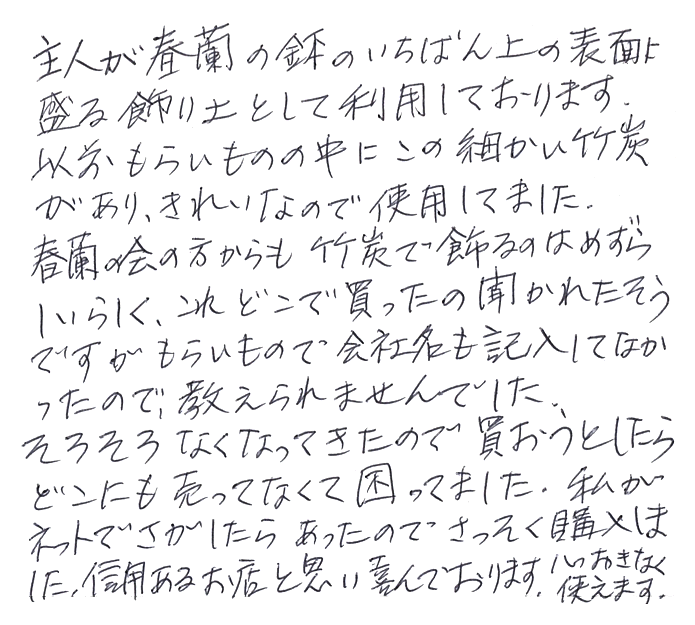 主人が春蘭の鉢のいちばん上の表面に
盛る飾り土として利用しております.
以前もらいものの中にこの細かい竹炭
があり、きれいなので使用してました.
春蘭の会の方からも竹炭で飾るのはめずら
しいらしく、これどこで買ったの聞かれたそう
ですがもらいもので会社名も記入してなか
ったので、教えられませんでした、
そろそろなくなってきたので買おうとしたら
どこにも売ってなくて困ってました. 私が
ネットでさがしたらあったのでさっそく購入しま
した、信用あるお店と思い喜んでおります. 心おきなく
使えます.